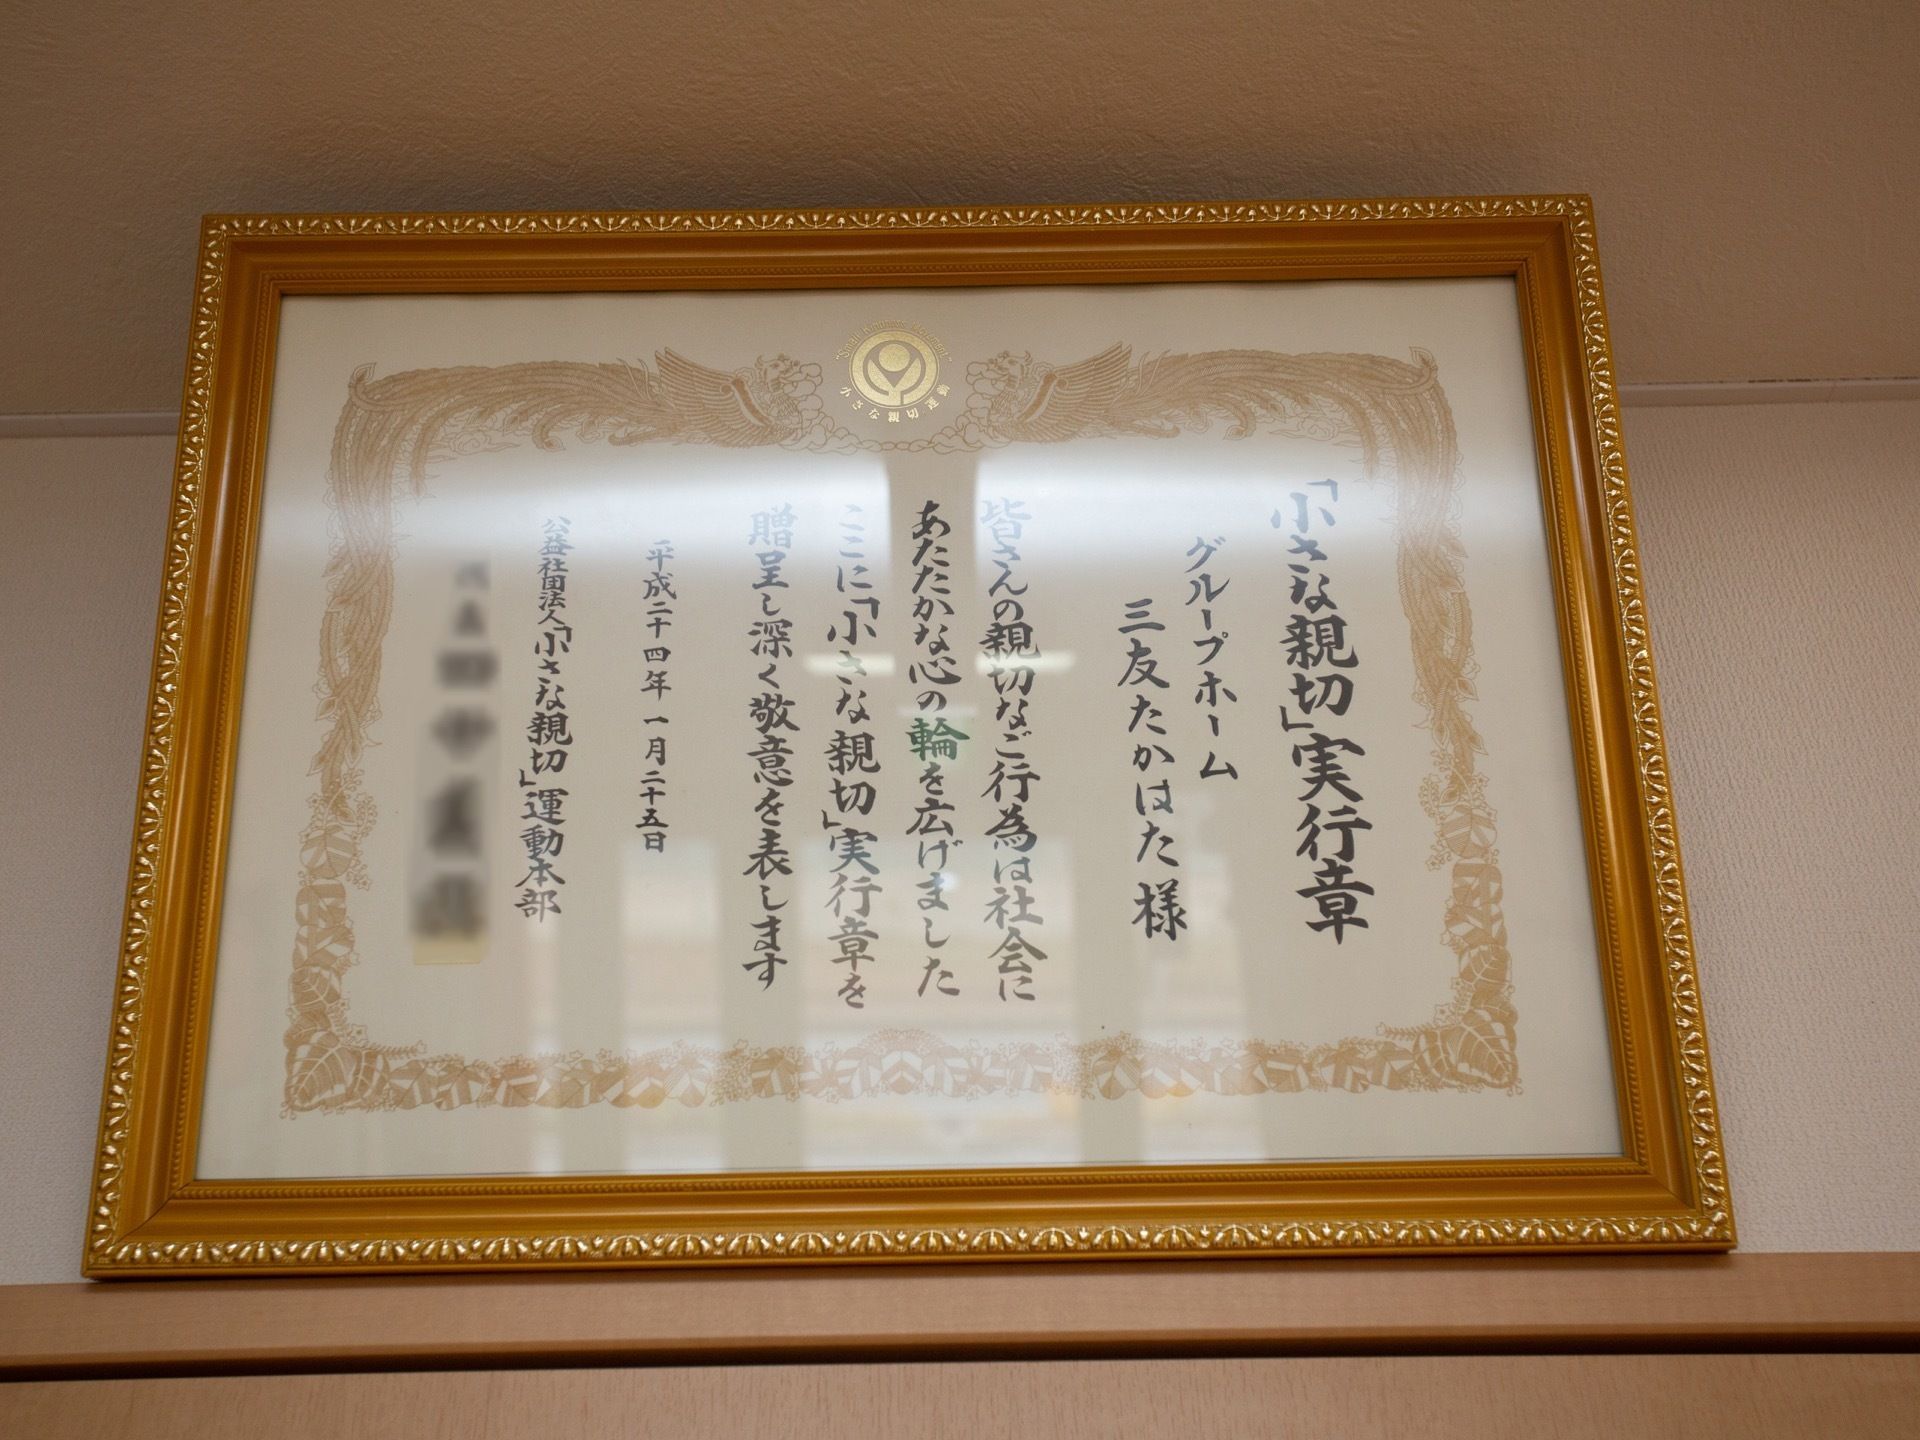 "Small Kindness Movement"
小さな親切運動
「小さな親切」実行章
グループホーム
三友たかはた様
皆さんの親切なご行為は社会に
あたたかな心の輪を広げました
ここに「小さな親切」実行章を
贈呈し深く敬意を表します
平成二十四年一月二十五日
公益社団法人「小さな親切」運動本部